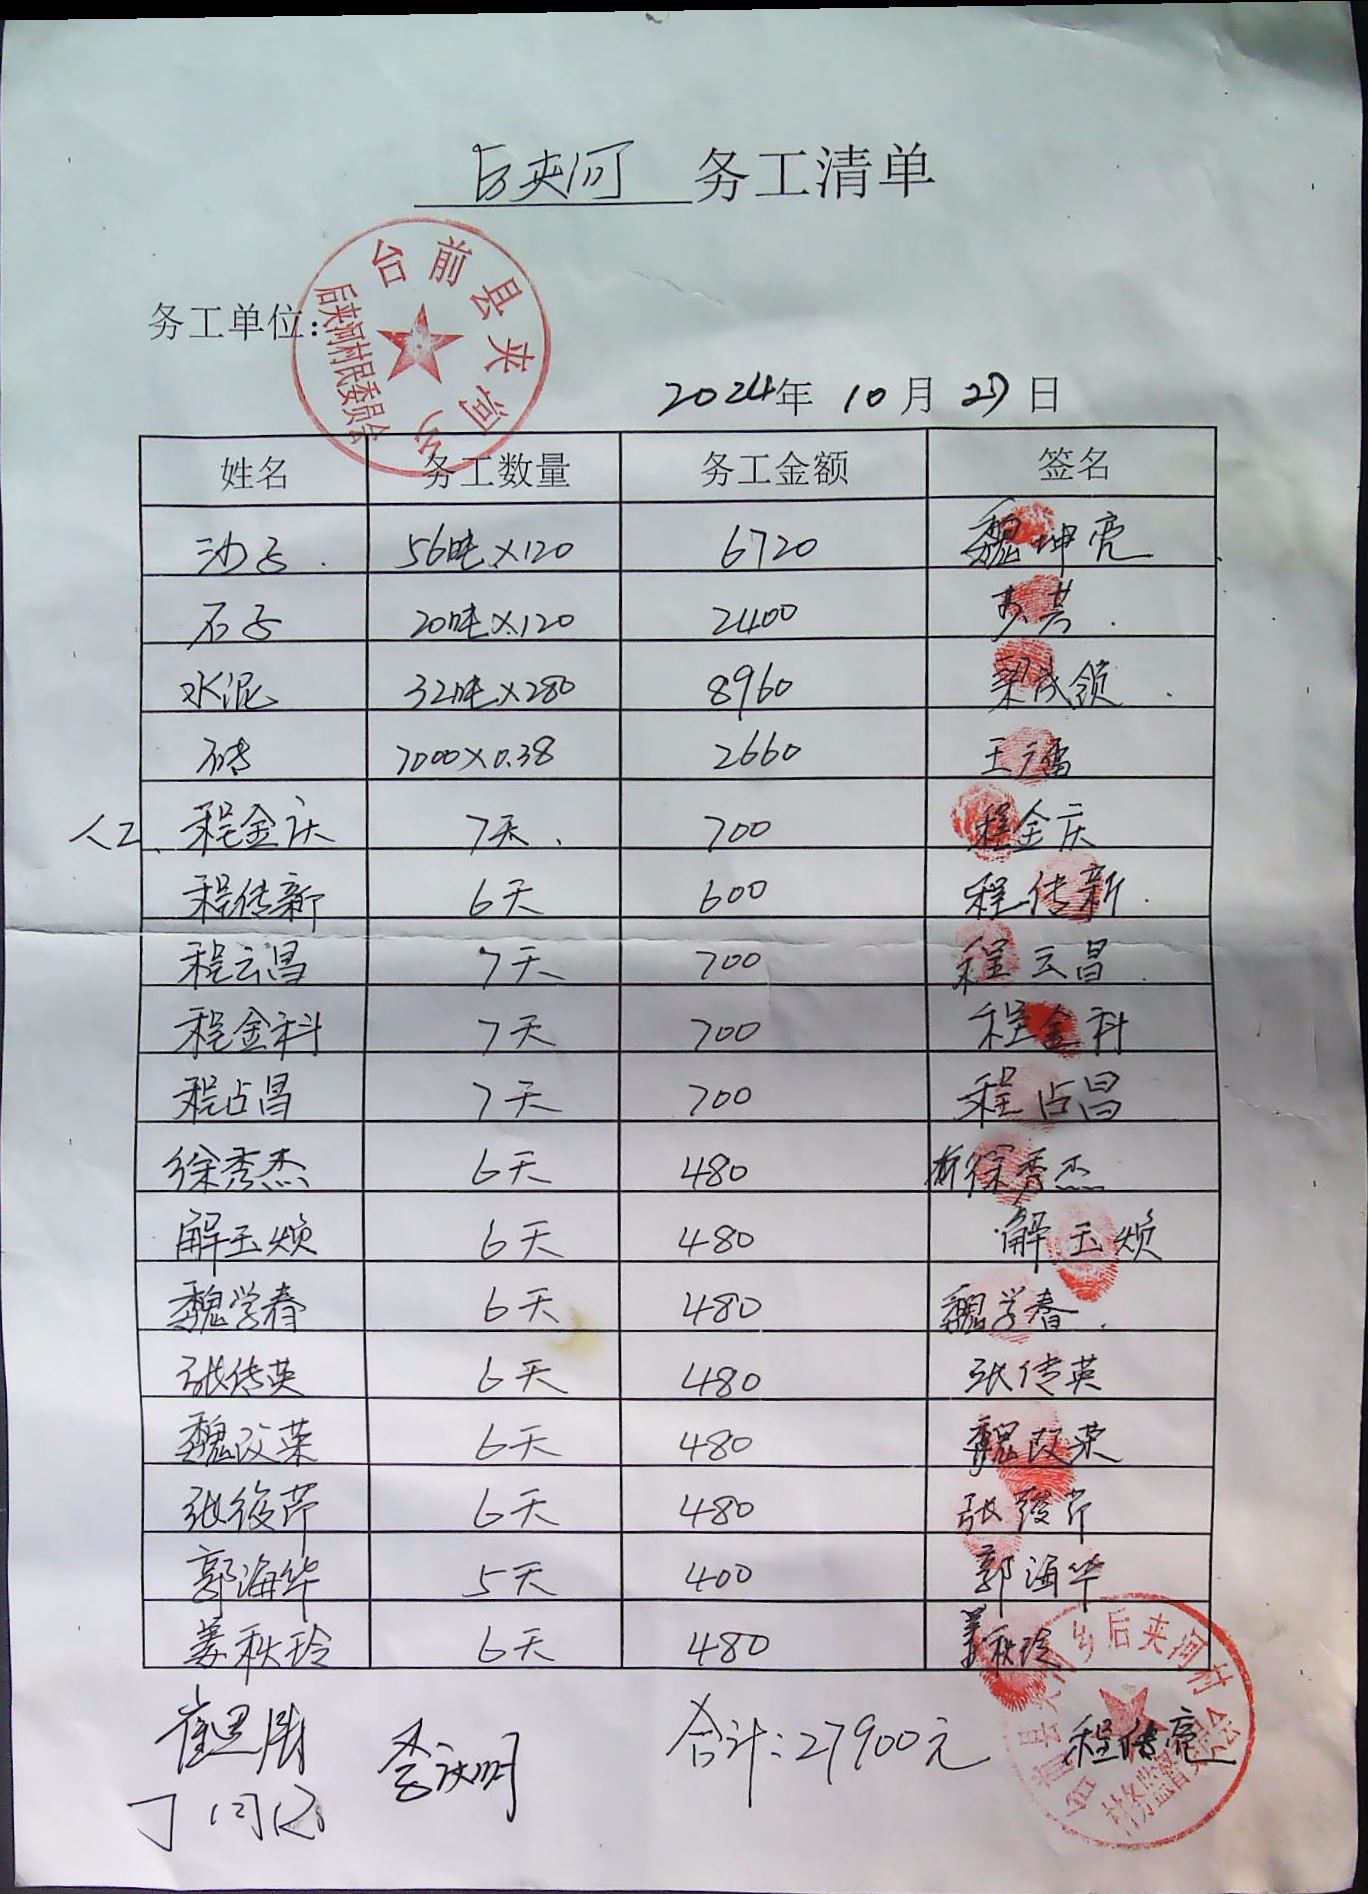 后夹河 务工清单
台前县夹河乡
后夹河村民委员会
务工单位:
2024年 10月 27日
姓名 务工数量 务工金额 签名
沙子 56吨×120 6720 魏坤亮
石子 20吨×120 2400
水泥 32吨×280 8960 梁成领
砖 7000×0.38 2660 王广雷
人工、 程金庆 7天 700 程金庆
程传新 6天 600 程传新
程云昌 7天 700 程云昌
程金科 7天 700 程金科
程占昌 7天 700 程占昌
徐秀杰 6天 480 徐秀杰
解玉焕 6天 480 解玉焕
魏学春 6天 480 魏学春
张传英 6天 480 张传英
魏改荣 6天 480 魏改荣
张俊芹 6天 480 张俊芹
郭海华 5天 400 郭海华
姜秋玲 6天 480 姜秋玲
合计:27900元 程传亮
台前县夹河乡后夹河村
村务监督委员会